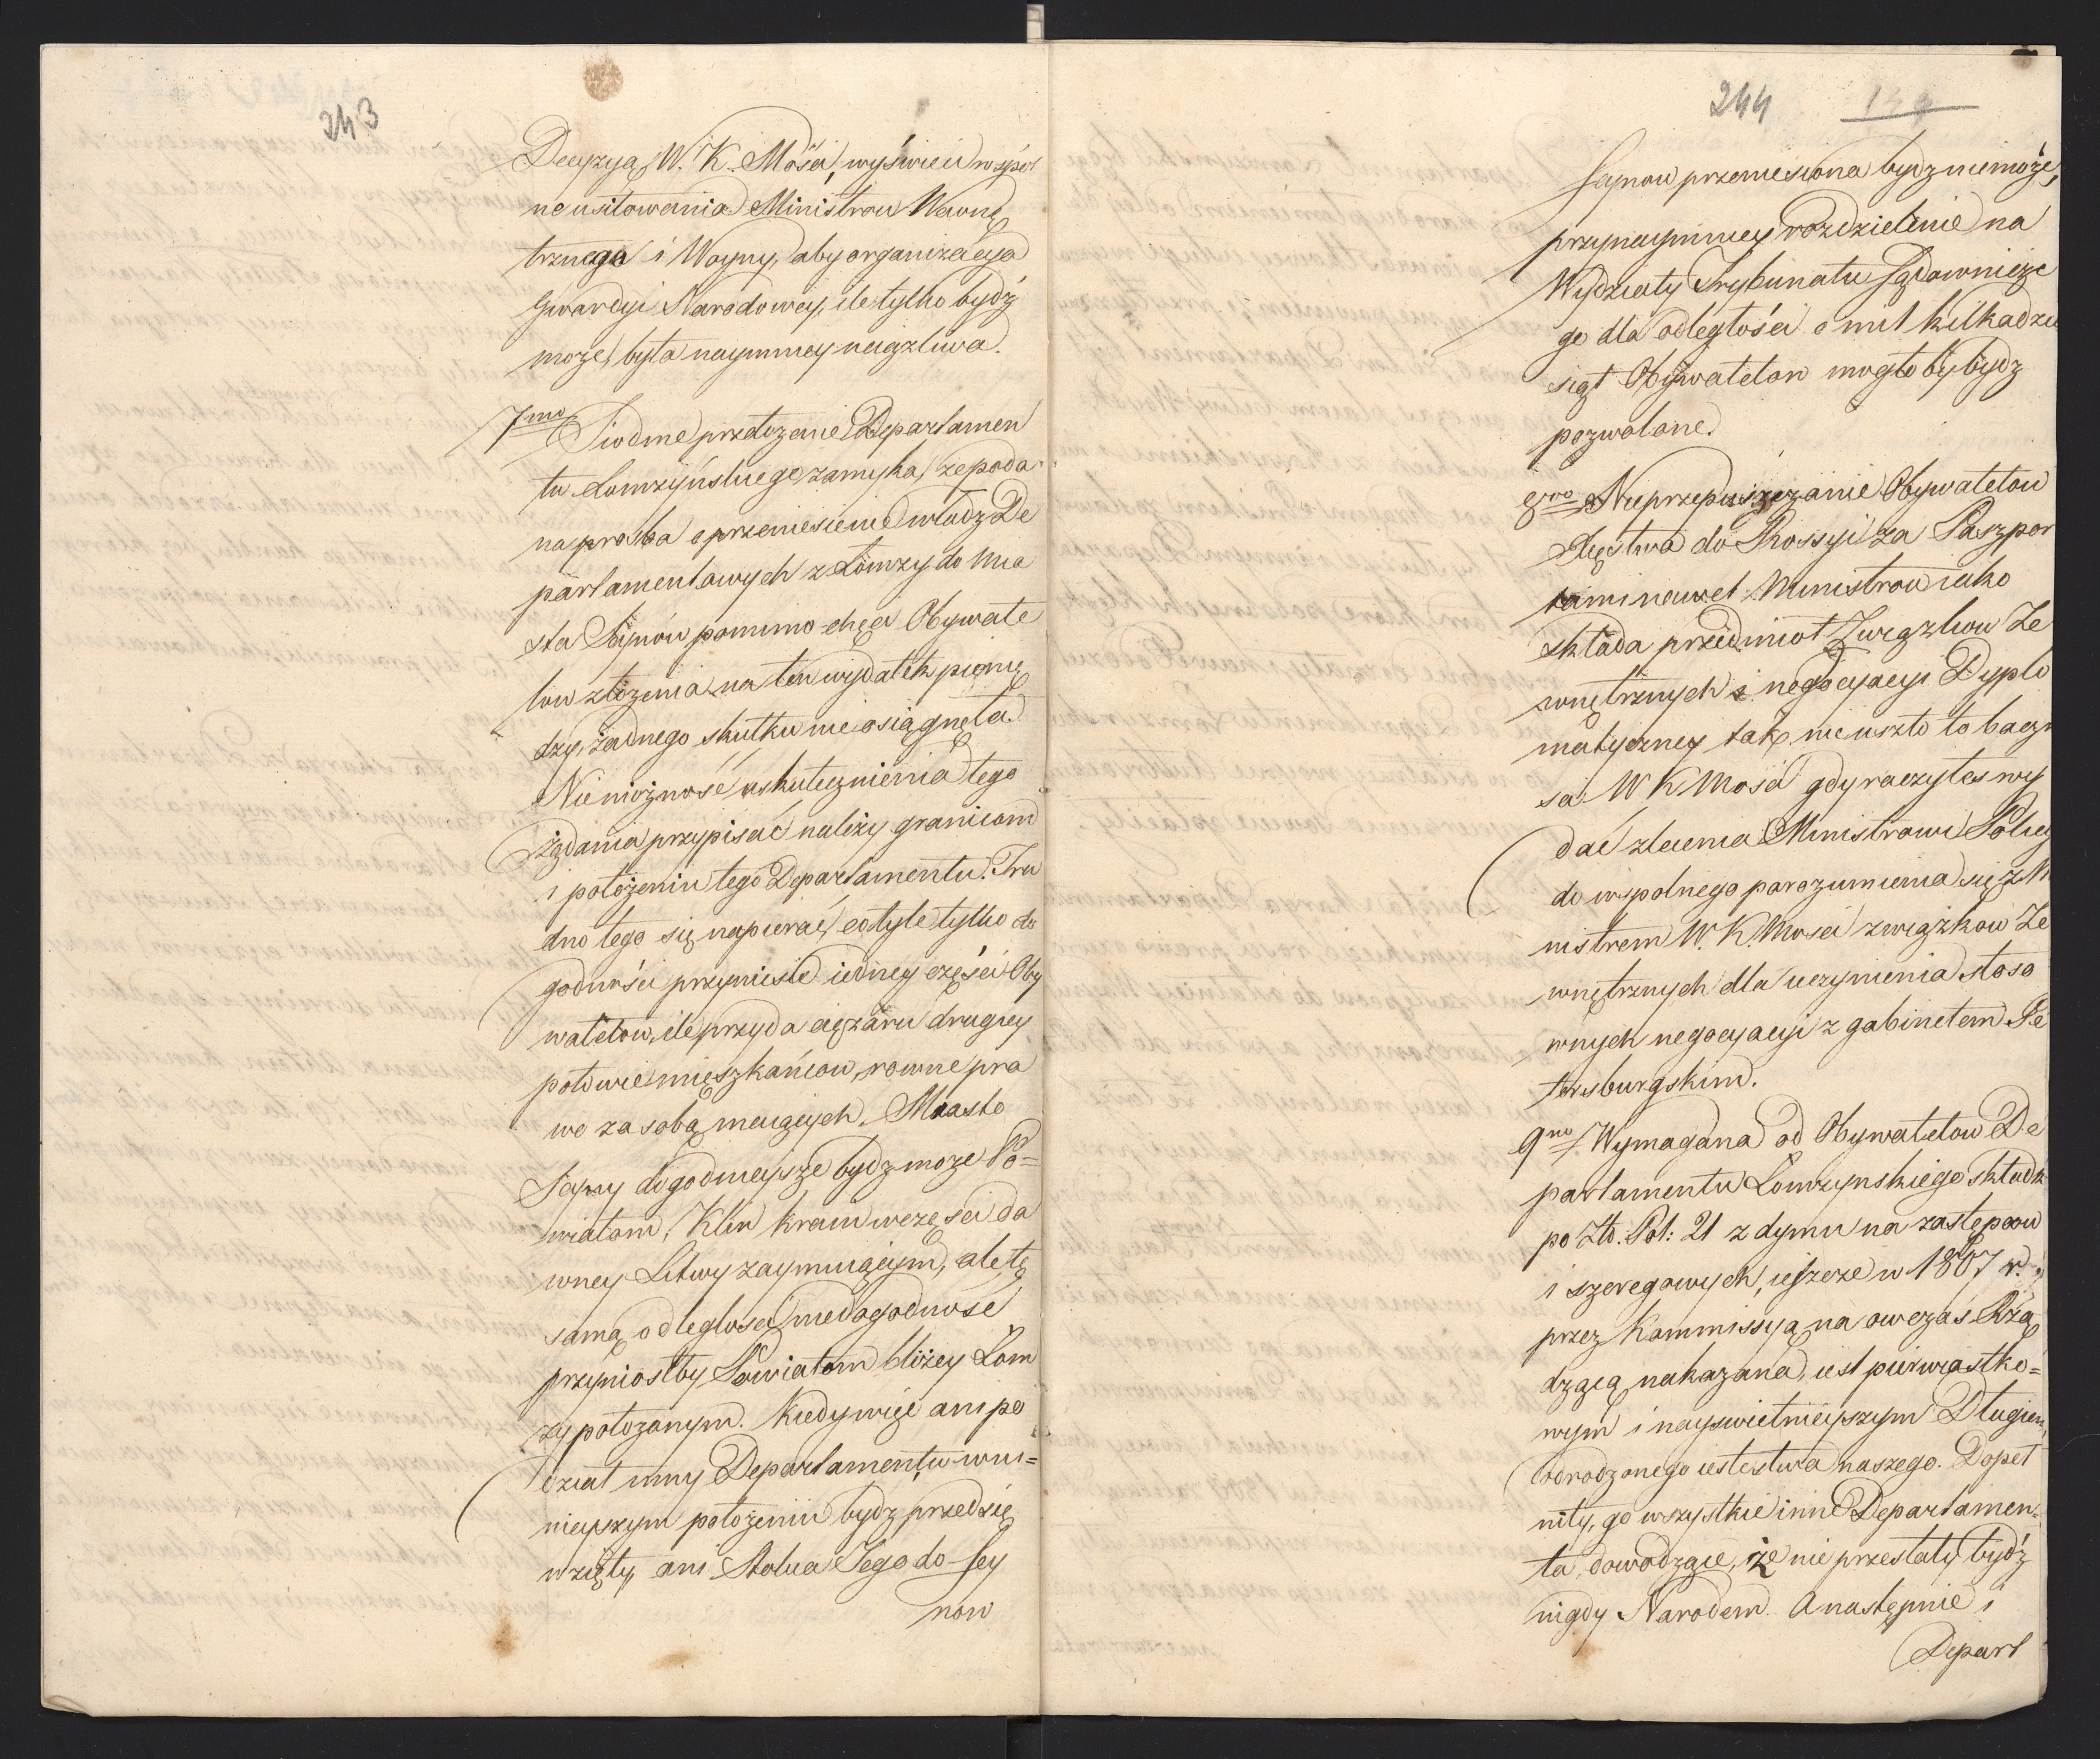 243
Decyzyą W. K. Mości, wyświeci wspól
ne usiłowania Ministrow Wewnę
trznego i Woyny, aby organizacya
Gwardyi Narodowey, ile tylko bydź
może, była naymniey uciążliwa.
7mo Siodme przełożenie Departamen
tu Łomżyńskiego zamyka, że poda
na prosba o przeniesienie władz De
partamentowych z Łomży do Mia
sta Seynów pomimo chęci Obywate
low złożenia na ten wydatek pienię
dzy, żadnego skutku nie osiągnęła.
Niemożność uskutecznienia tego
żądania przypisać należy granicom
i położeniu tego Departamentu. Tru
dno tego się napierać, co tyle tylko do
godności przyniesie iedney części Oby
watelow, ile przyda ciężaru drugiey
połowie mieszkańcow, rowne pra
wo za sobą maiących. Miasto
Seyny dogodnieysze bydz może Po=
wiatom, Klin kraiu w części da
wney Litwy zaymuiącym, ale tę
samą odległości niedogodność
przyniosłby Powiatom bliżey Łom
ży położonym. Kiedy więc ani po
dział inny Departamentu w ni=
nieyszym położeniu bydz przedsię
wzięty, ani Stolica Jego do Sey
now
244
144
Seynow przeniesiona bydz niemoże,
przynaymniey rozdzielenie na
Wydziały Trybunału Sądownicze
go dla odległości o mil kilkadzie
siąt Obywatelom mogło by bydz
pozwolone.
8vo Nieprzepuszczanie Obywatelow
Xięstwa do Rossyi za Paszpor
tami nawet Ministrow iako
składa przedmiot Związkow Ze
wnętrznych i negocyacyi Dyplo
matyczney, tak nie uszło to baczno
sci W K Mości gdy raczyłeś wy
dać zlecenia Ministrowi Policyi
do wspolnego porozumienia się z Mi
nistrem W. K. Mości związkow Ze
wnętrznych dla uczynienia stoso
wnych negocyacyi z gabinetem Pe
tersburgskim.
9no Wymagana od Obywatelow De
partamentu Łomżynskiego składka
po Zło. Pol: 21 z dymu na zastępcow
i szeregowych, ieszcze w 1807 r.
przez Kommissyą na owczas Rzą
dzącą nakazana, iest pierwiastko=
wym i nayswietnieyszym Długiem
odrodzonego iestestwa naszego. Dopeł
niły go wszystkie inne Departamen=
ta, dowodząc, że nie przestały bydź
nigdy Narodem. A następnie i
Depart